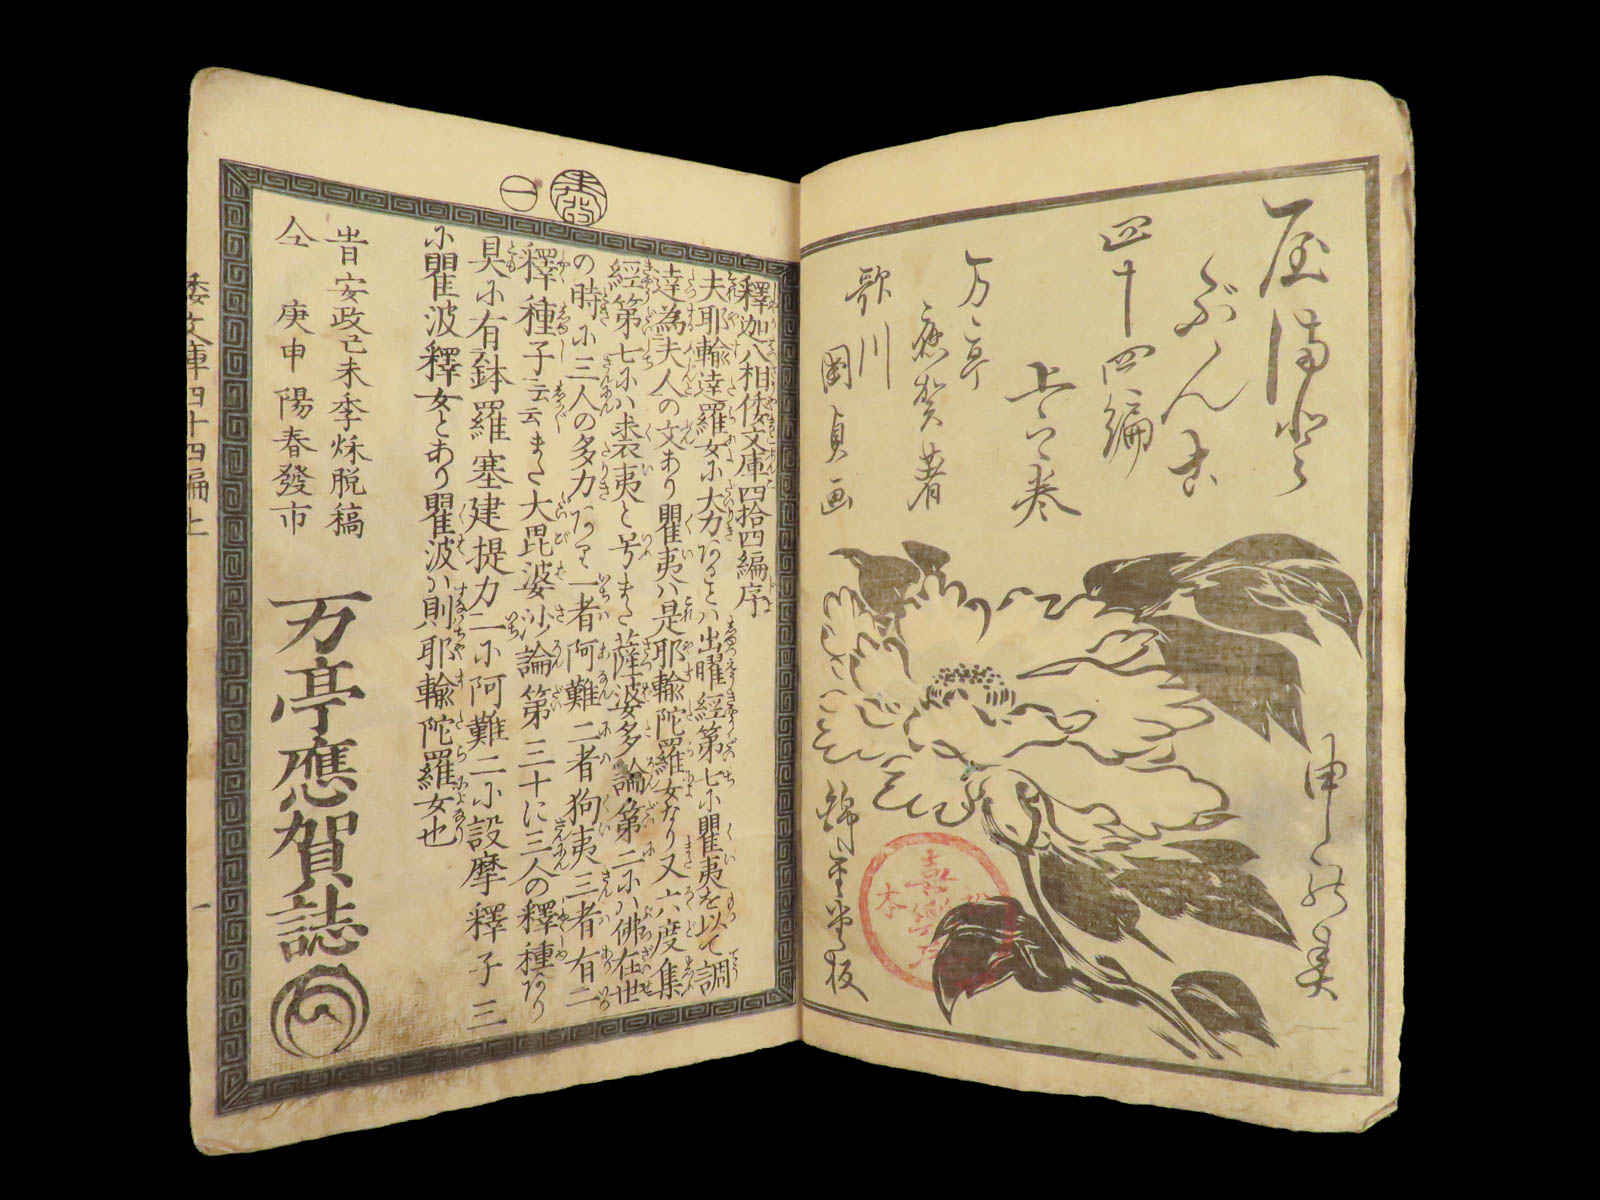 屋満登
ぶんこ
四十四編
上之巻
万亭
應賀著
歌川
國貞画
申の春
錦重堂板
釋迦八相倭文庫四拾四編序
夫耶輸達羅女に大力あることハ出曜經第七に瞿夷を以て調
達為夫人の文あり瞿夷ハ是耶輸陀羅女なり又六度集
經第七にハ裘夷と号また薩婆多論第二にハ佛在世
の時に三人の多力あり一者阿難二者狗夷三者有二
釋種子云云また大毘婆沙論第三十に三人の釋種あり
具に有鉢羅塞建提力一に阿難二に設摩釋子三
に瞿波釋女とあり瞿波ハ則耶輸陀羅女也
昔安政己未季秌脱稿
仝 庚申陽春發市
万亭應賀誌
倭文庫四十四編上
一